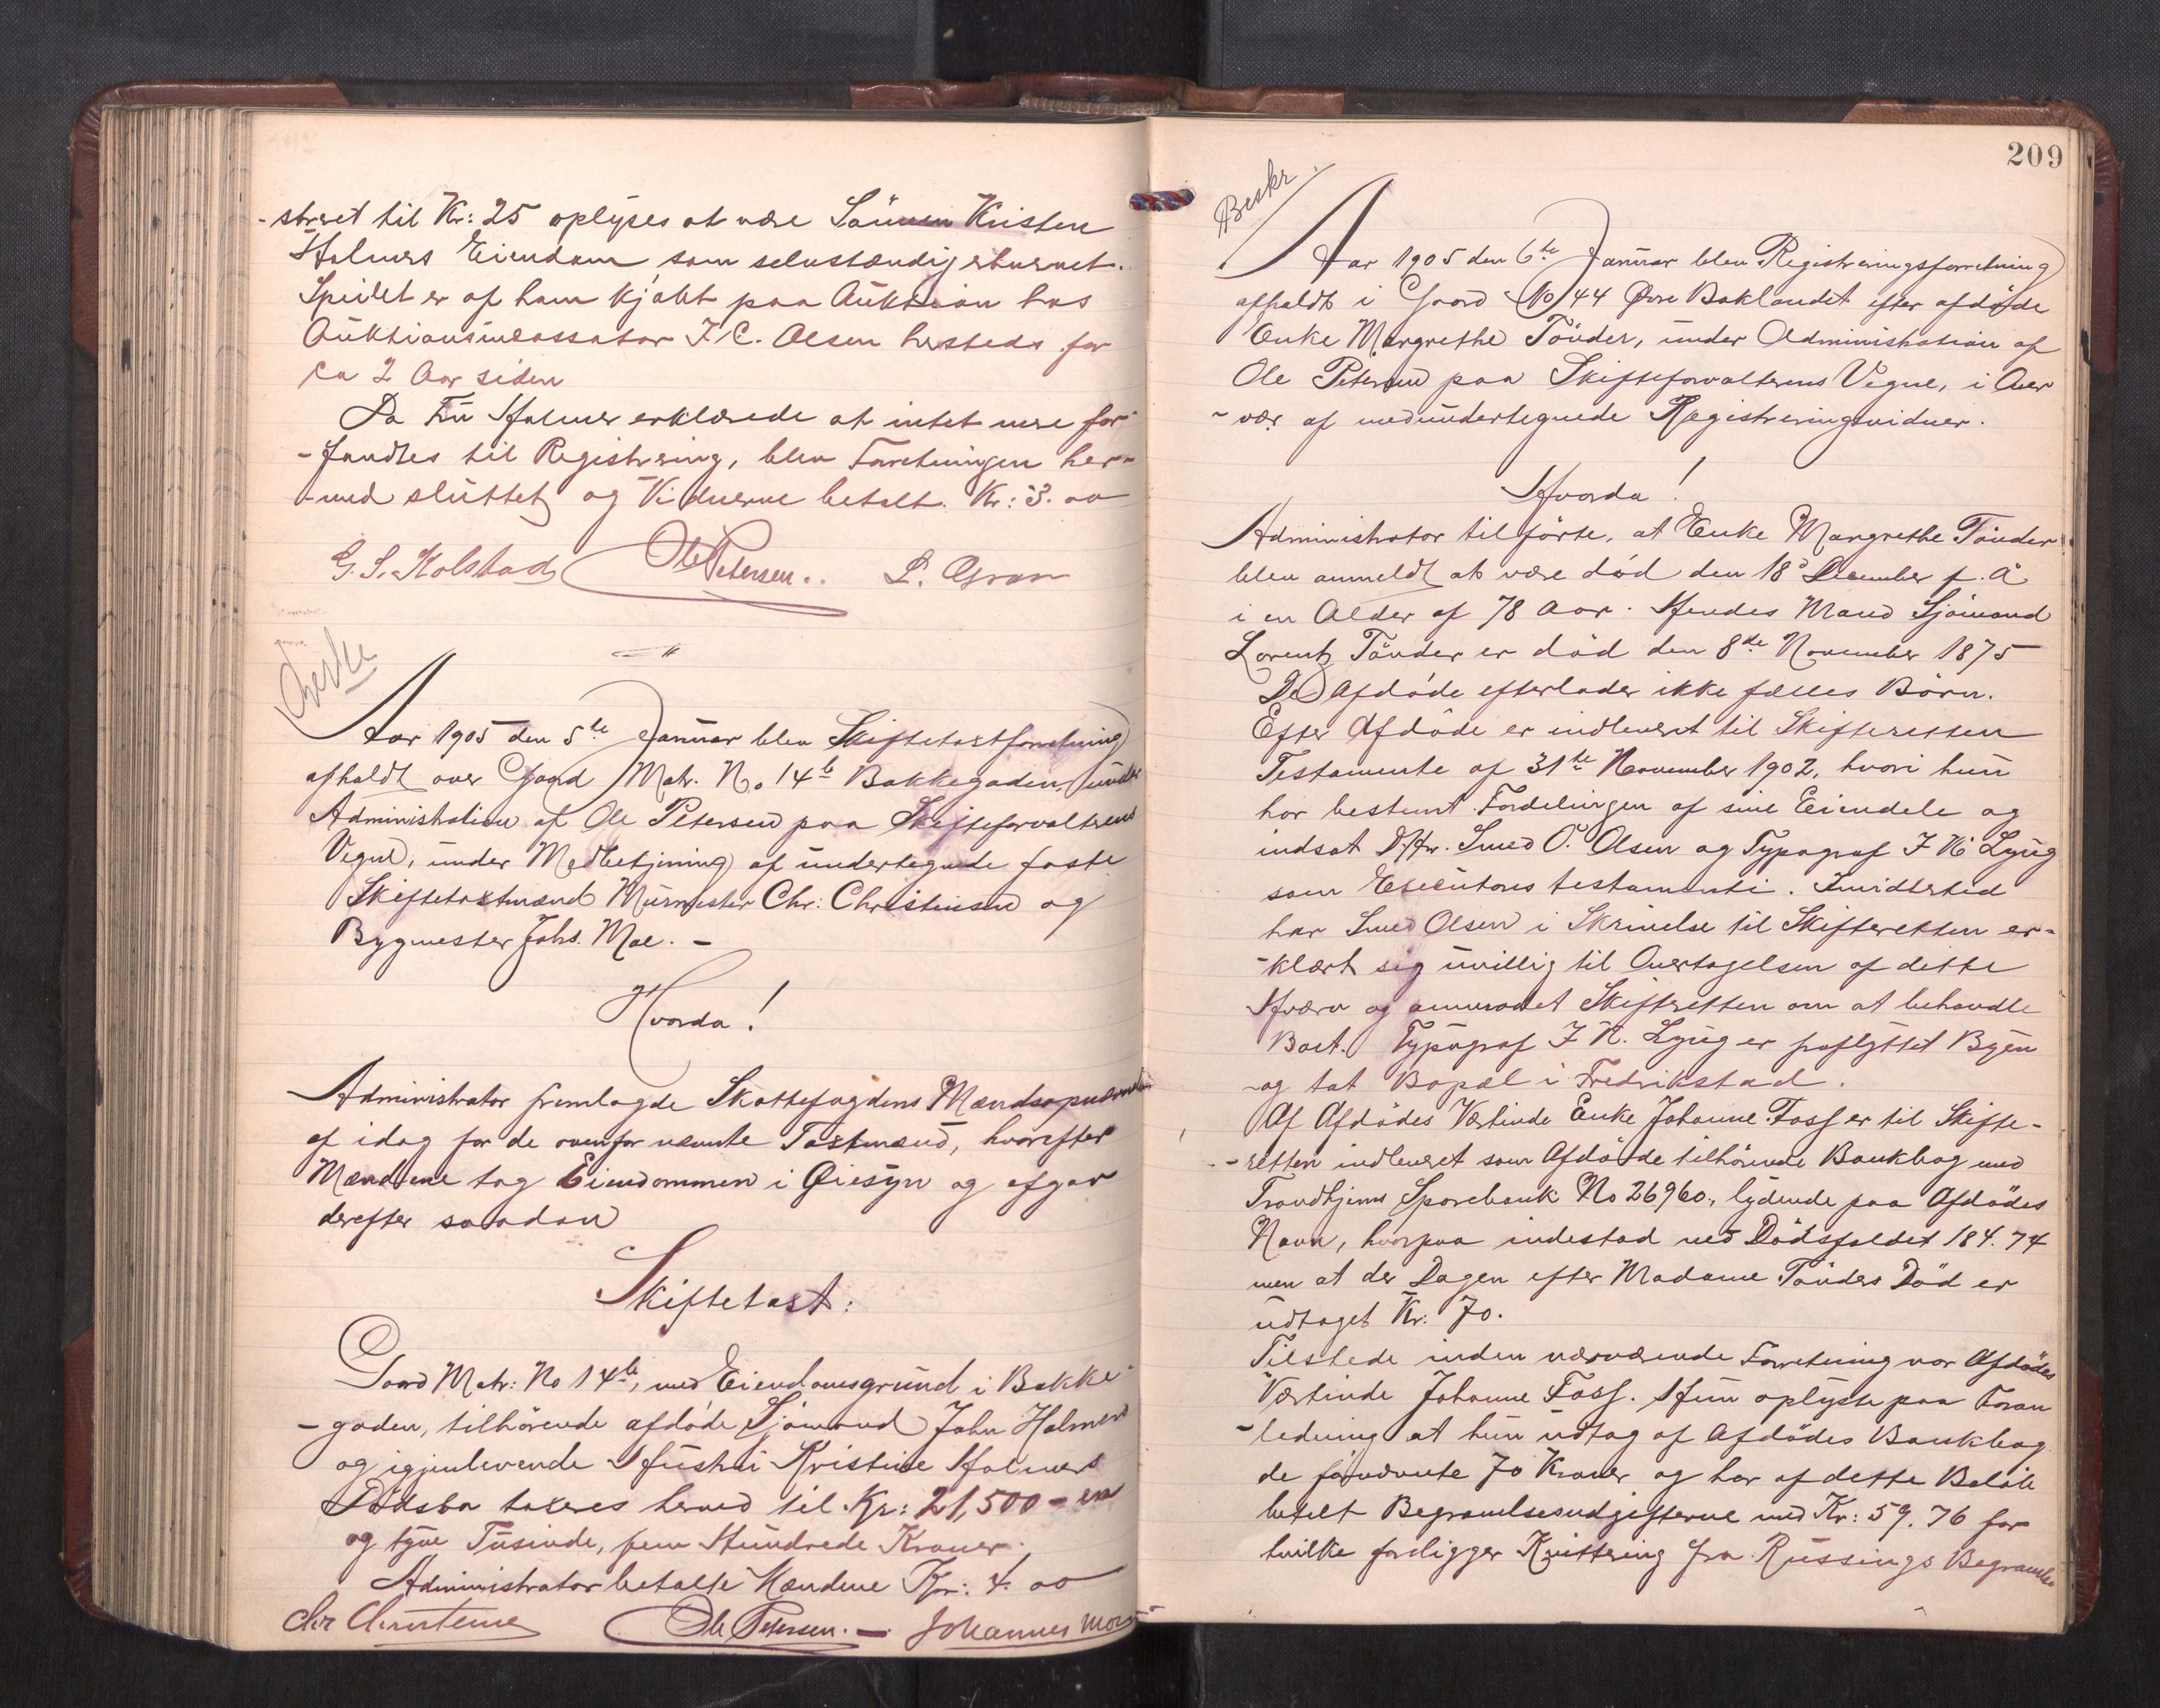 -streret til Kr: 25 oplyses at være Sönnen Kristen
Holmers Eiendom som selvstændig erhvervet.
Speilet er af ham kjöbt paa Auktion hos
Auktionsincassator J. C. Olsen hersteds for
ca 2 Aar siden
Da Fru Holmer erklærede at intet mere for-
-fandtes til Registrering, blev Forretningen her-
-med sluttet og Vidnerne betalt. Kr: 3.00
G. S. Kolstad Ole Petersen.. L. Gran
Beskr
Aar 1905 den 5te Januar blev Skiftetaxtforretning
afholdt over Gaard Matr. No 14b Bakkegaden, under
Administration af Ole Petersen paa Skifteforvalterens
Vegne, under Medbetjening af undertegnede faste
Skiftetaxtmænd Murmester Chr: Christensen og
Bygmester Johs. Moe. -
Hvorda!
Administrator fremlagde Skattefogdens Mandsopnævnelse
af idag for de ovenfor nævnte Taxtmænd, hvorefter
Mændene tog Eiendommen i Øiesyn og afgav
derefter saadan
Skiftetaxt:
Gaard Matr: No 14b, med Eiendomsgrund i Bakke-
-gaden, tilhörende afdöde Sjömand John Holmers
og igjenlevende Hustru Kristine Holmers
Dödsbo taxeres herved til Kr: 21,500 - en
og tyve Tusinde, fem Hundrede Kroner.
Administrator betalte Mændene Kr: 4.00
Chr Christensen Ole Petersen. — Johannes Moe
209
Beskr.
Aar 1905 den 6te Januar blev Registreringsforretning
afholdt i Gaard No 44 Øvre Baklandet efter afdöde
Enke Margrethe Tönder, under Administration af
Ole Petersen paa Skifteforvalterens Vegne, i Over
-vær af medundertegnede Registreringsvidner.
Hvorda!
Administrator tilförte, at Enke Margrethe Tönder
blev anmeldt at være död den 18de December f. A
i en Alder af 78 Aar. Hendes Mand Sjömand
Lorentz Tönder er död den 8de November 1875
De Afdöde efterlader ikke fælles Börn.
Efter Afdöde er indleveret til Skifteretten
Testamente af 31te November 1902, hvori hun
har bestemt Fordelingen af sine Eiendele og
indsat D'Hr. Smed O. Olsen og Typograf J N Lyng
som Executores testamenti. Imidlertid
har Smed Olsen i Skrivelse til Skifteretten er-
-klært sig uvillig til Overtagelsen af dette
Hværv og anmodet Skifteretten om at behandle
Boet. Typograf J N. Lyng er fraflyttet Byen
-og tat Bopæl i Fredrikstad.
Af Afdödes Værtinde Enke Johanne Foss er til Skifte-
-retten indleveret som Afdöde tilhörende Bankbog med
Trondhjems Sparebank No 26960, lydende paa Afdödes
Navn, hvorpaa indestod ved Dödsfaldet 184.74
men at der Dagen efter Madame Tönders Död er
udtaget Kr: 70.
Tilstede inden nærværende Forretning var Afdödes
Værtinde Johanne Foss. Hun oplyste paa Foran
-ledning at hun udtog af Afdödes Bankbog
de förnævnte 70 Kroner og har af dette Belöb
betalt Begravelsesudgifterne med Kr: 59.76 for
hvilke foreligger Kvittering fra Russings Begravelses